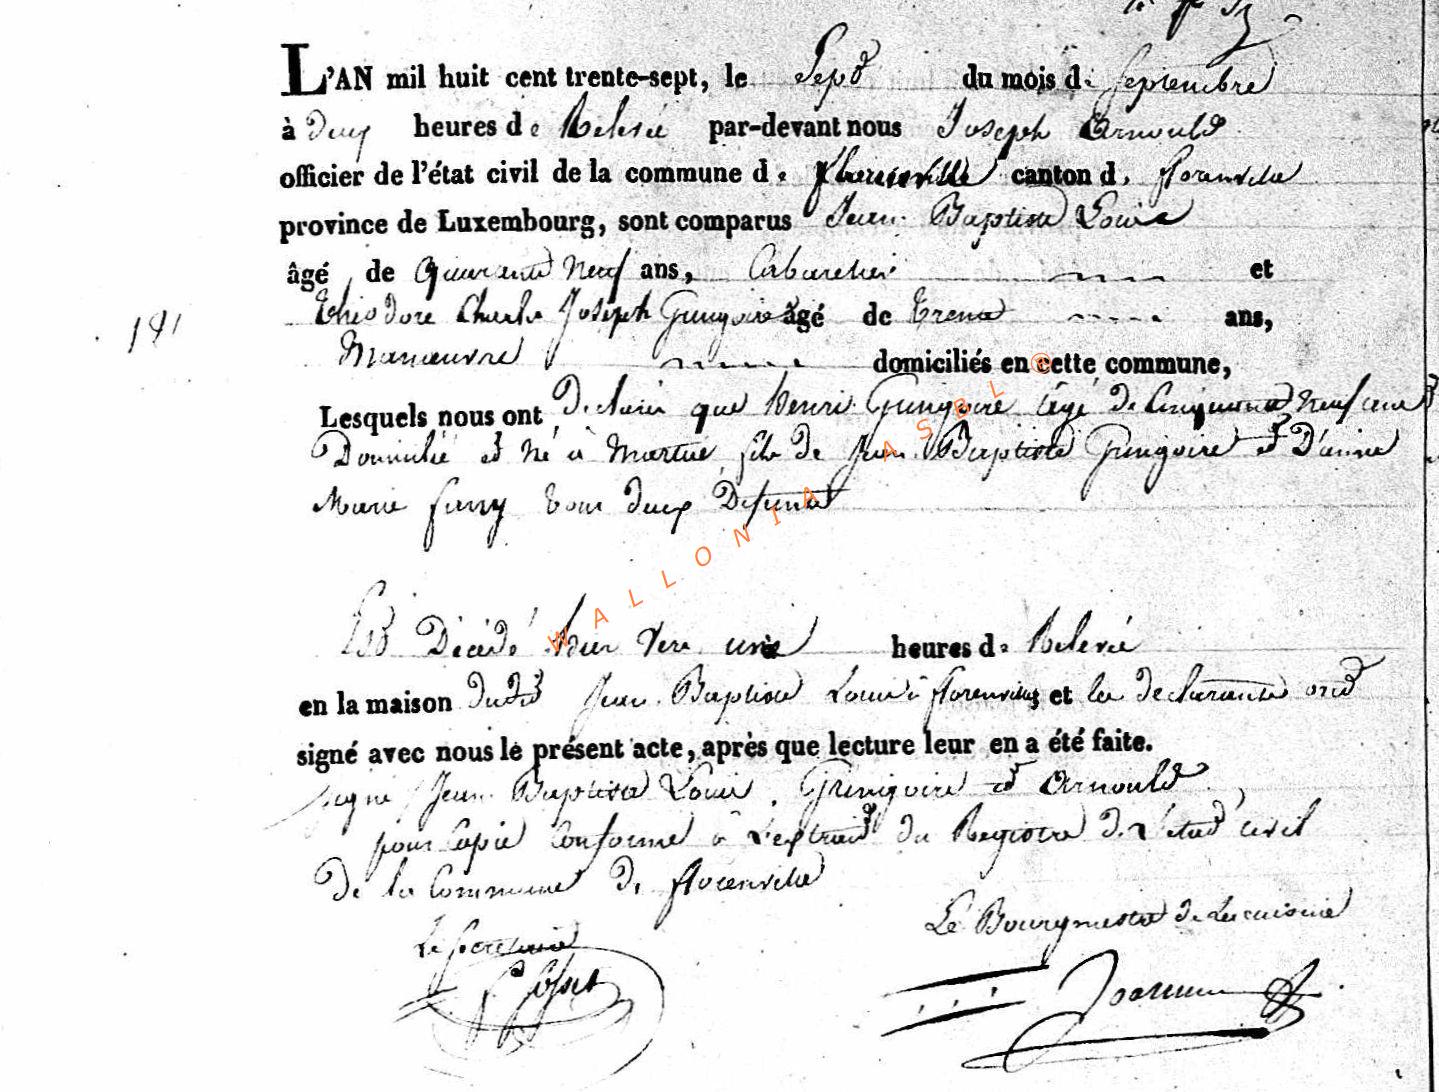 L'AN mil huit cent trente-sept, le Sept du mois de Septembre
à deux heures de Relevé par-devant nous Joseph Arnould
officier de l'état civil de la commune de florenville canton de florenville
province de Luxembourg, sont comparus Jean Baptiste Louis
âgé de quarante Neuf ans, Cabaretier et
Théodore Charles Joseph Gringoire âgé de Trente ans,
Manœuvre domiciliés en cette commune,
Lesquels nous ont Déclaré que henri Gringoire âgé de Cinquante Neuf ans
Domicilié et Né à Martué fils de Jean Baptiste Gringoire et D'anne
Marie tous deux Défunt
Est Décédé hier vers une heures de Relevé
en la maison dudit Jean Baptiste Louis à florenville et les déclarants ont
signé avec nous le présent acte, après que lecture leur en a été faite.
signé Jean Baptiste Louis, Gringoire et Arnould
pour Copie Conforme à L'extrait du Registre de L'état civil
De la Commune de florenville
Le Bourgmestre de Lacuisine
Le Secrétaire
191
WALLONIA ASBL ®